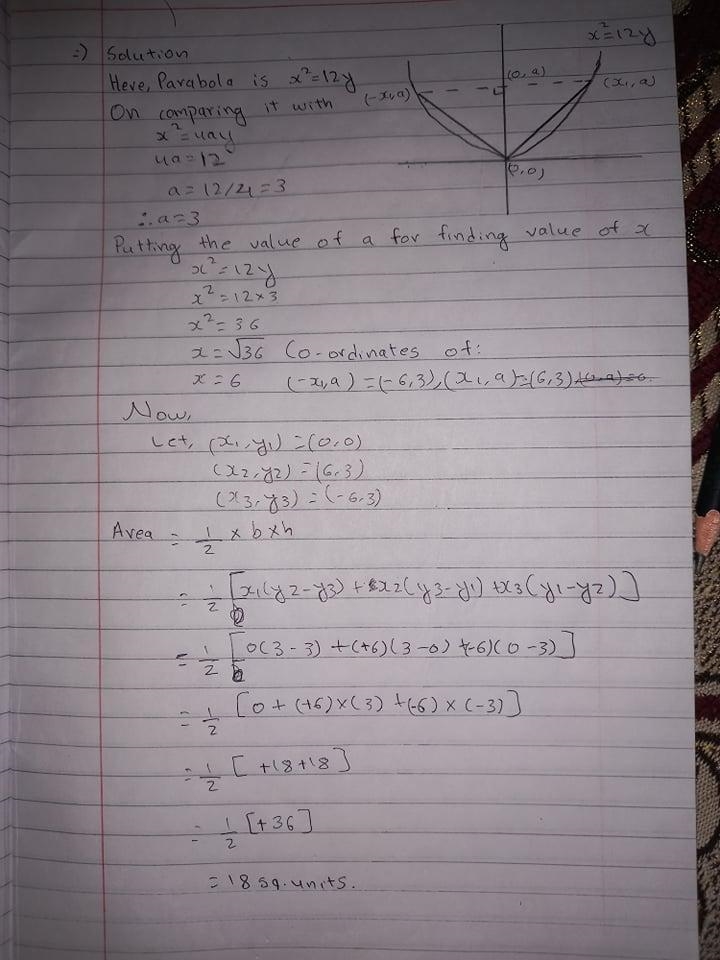 x²=12y
⇒) Solution
Here, Parabola is x²=12y
(0,a)
(-x1,a)
(x1,a)
On comparing it with
x²=4ay
4a=12
(0,0)
a=12/4=3
∴a=3
Putting the value of a for finding value of x
x²=12y
x²=12×3
x²=36
x=√36 Co-ordinates of:
x=6 (-x1,a)=(-6,3),(x1,a)=(6,3)
Now,
Let, (x1,y1)=(0,0)
(x2,y2)=(6,3)
(x3,y3)=(-6,3)
Area = 1/2 × b×h
= 1/2 [x1(y2-y3)+x2(y3-y1)+x3(y1-y2)]
= 1/2 [0(3-3)+(+6)(3-0)+(-6)(0-3)]
= 1/2 [0+(+6)×(3)+(-6)×(-3)]
= 1/2 [+18+18]
= 1/2 [+36]
=18 sq.units.